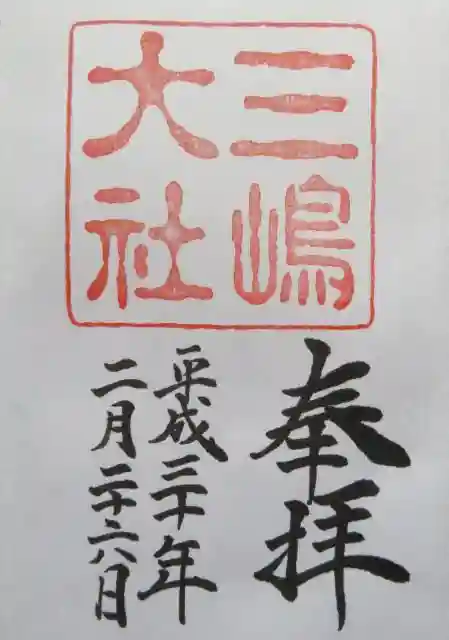 三嶋
大社
奉拝
平成三十年
二月二十六日